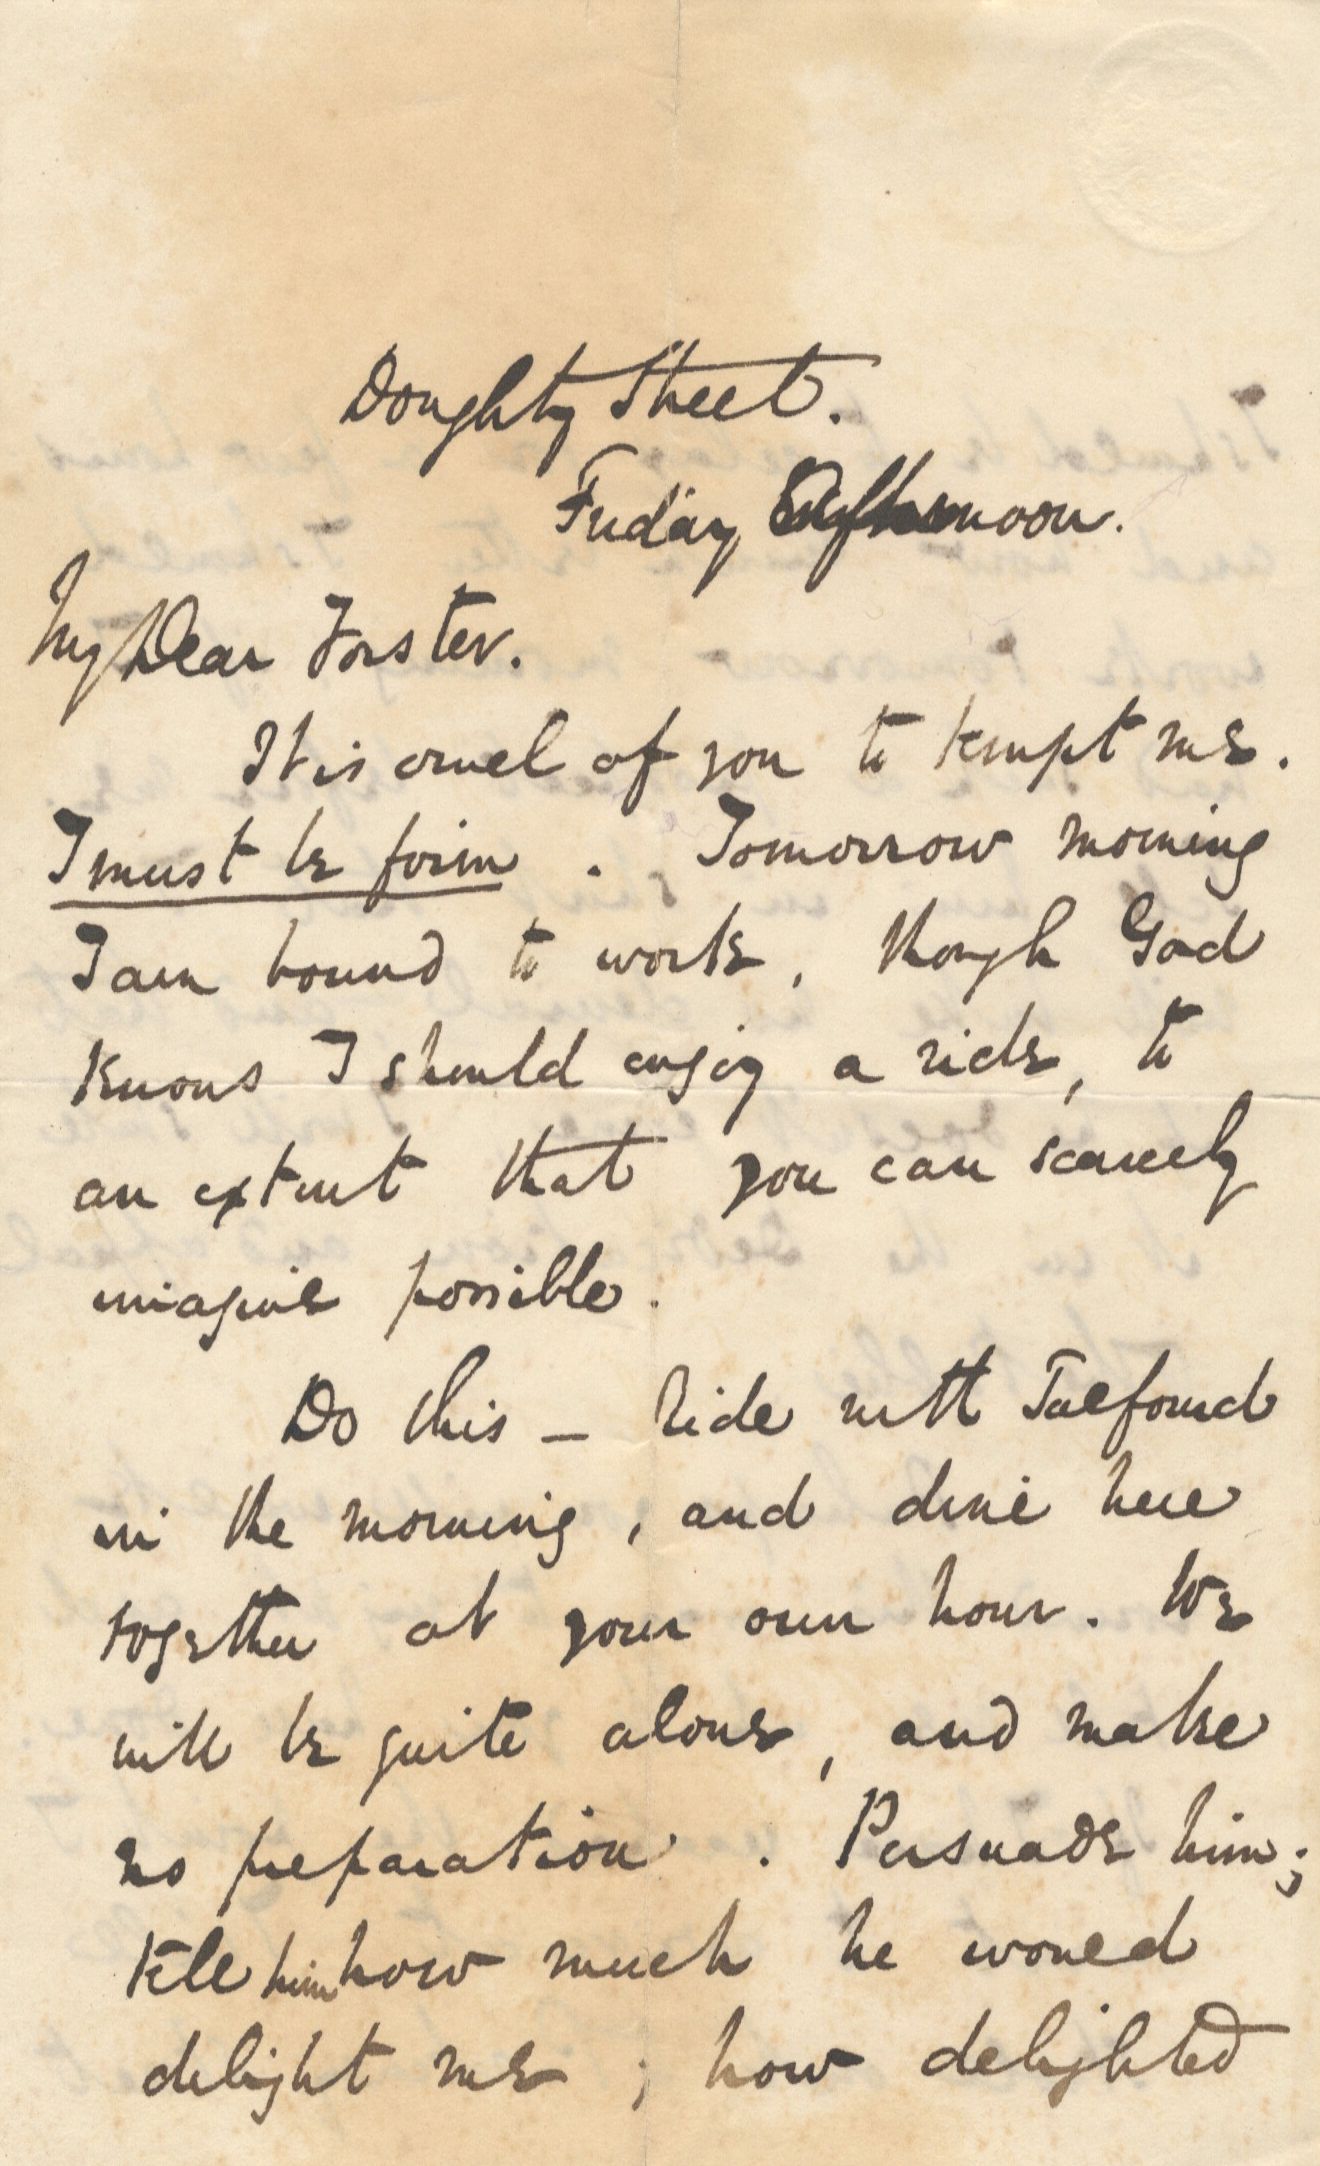 Doughty Street.
Friday Afternoon.
My Dear Forster.
It is cruel of you to tempt me.
I must be firm. Tomorrow morning
I am bound to work, though God
knows I should enjoy a ride, to
an extent that you can scarcely
imagine possible.
Do this – Ride with Talfourd
in the morning, and dine here
together at your own hour. We
will be quite alone, and make
no preparation. Persuade him;
tell him how much he would
delight me; how delighted